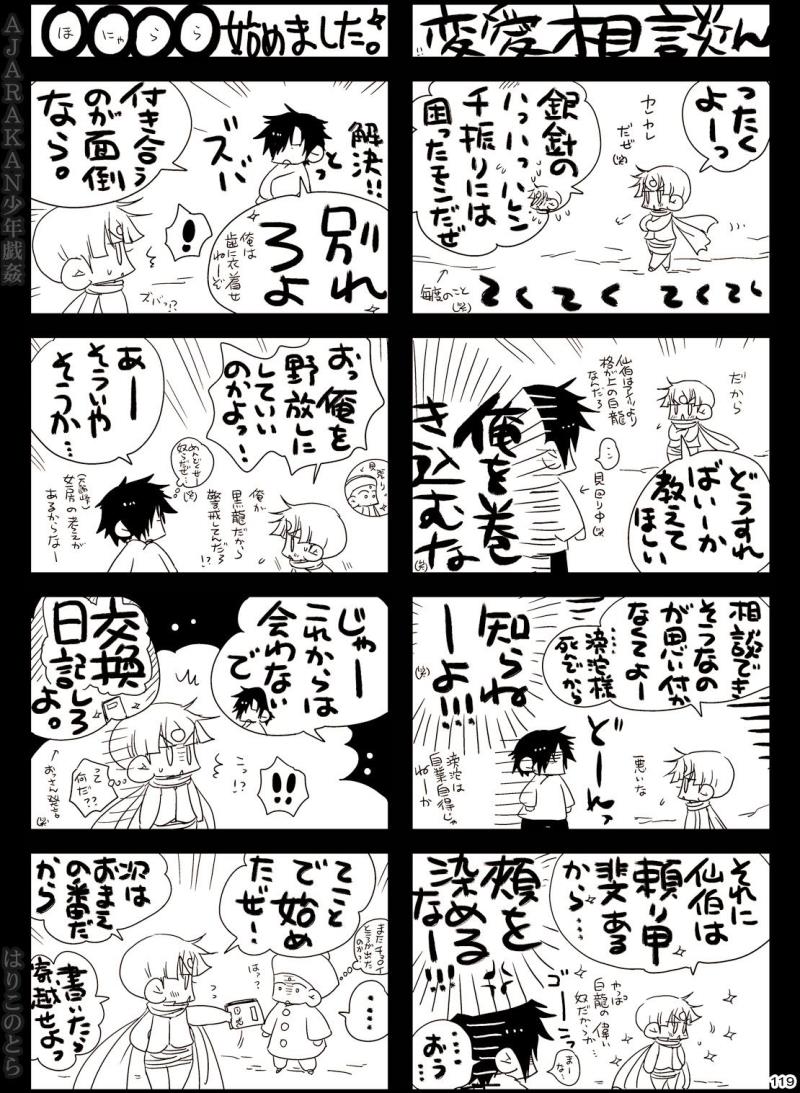 変愛相談ん
ったく
よーっ
ヤレヤレ
だぜ(笑)
銀針の
ハッハッハレン
チ振りには
困ったモンだぜ
毎度のこと
(笑)
てくてく てくてく
だから
どうすれ
ばいーか
教えて
ほしい
仙伯はアイツより
格が上の白龍
なんだろ
俺を巻
き込むな
(笑)
相談でき
そうなの
が思い付か
なくてよー
死んでから
知らね
ーよ!!!
(笑)
どーんっ
悪いな
自業自得じゃ
ねーか
それに
仙伯は
頼り甲
斐ある
から……
やっぱ
白龍の偉い
奴だからか…
頬を
染める
なー!!!
ゴーっ
まー
な…
……
おう
ほにゃらら始めました。
解決!!
ズバっと
付き合う
のが面倒
なら。
別れ
ろよ
俺は
歯に衣着せ
ねーぞ
!
ズバっ!?
おっ俺を
野放しに
していい
のかよっ…
俺が
黒龍だから
警戒してんだろ
!?
めんどくせー
奴らだぜ…
(笑)
あー
そういや
そうか…
女房の考えが
あるからなー
じゃー
これからは
会わない
で
交換
日記しろ
よ。
おっさん発言。
(笑)
って
何だ??
こっ!?
!!
てこと
で始め
たぜー
次は
おまえ
の番だ
から
書いたら
寄越せよっ
はァ?
またチョロイ
ところが出た
のか?
……
AJARAKAN少年戯姦
はりこのとら
119